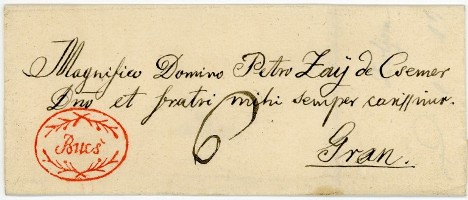 Magnifico Domino Petro Zaÿ de Csemer
Dno et fratri mihi semper carissimo.
6
Bucs
Gran.